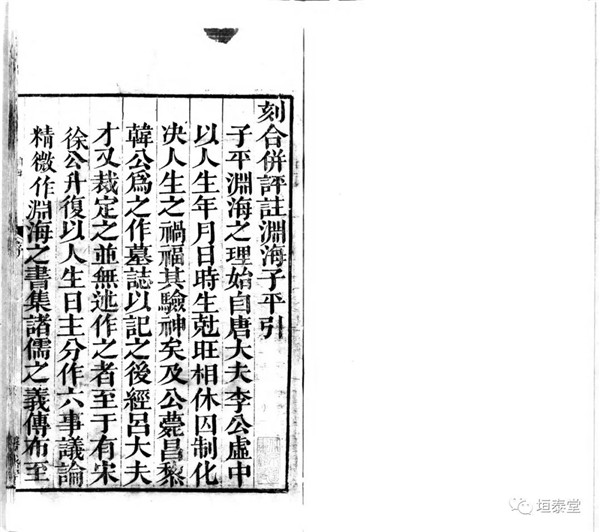 刻合併評註淵海子平引
子平淵海之理始自唐大夫李公虛中
以人生年月日時生尅旺相休囚制化
决人生之禍福其驗神矣及公薨昌黎
韓公爲之作墓誌以記之後經呂大夫
才又裁定之並無述作之者至于有宋
徐公升復以人生日主分作六事議論
精微作淵海之書集諸儒之義傳布至
垣泰堂